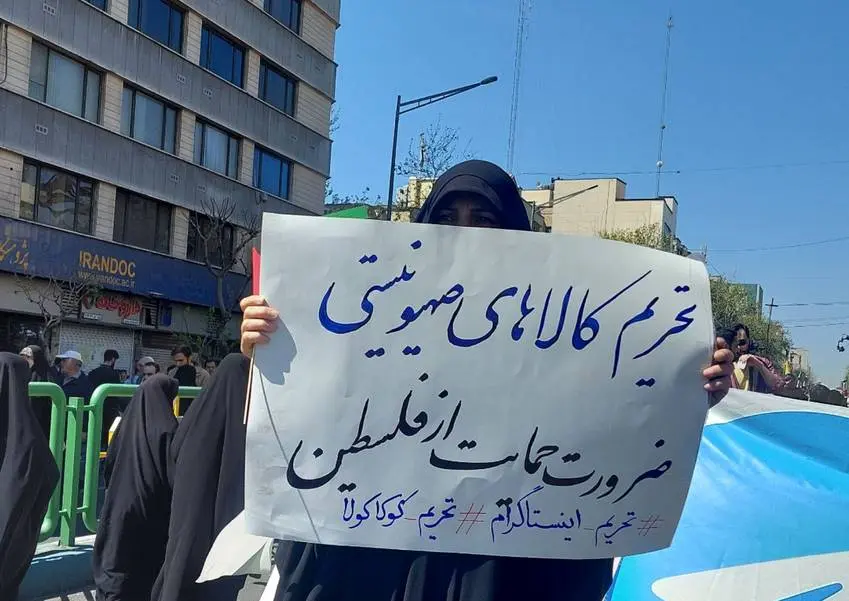 تحریم کالاهای صهیونیستی
ضرورت حمایت از فلسطین
#تحریم_اینستاگرام #تحریم_کوکاکولا
IRANDOC
www.irandoc.ac.ir